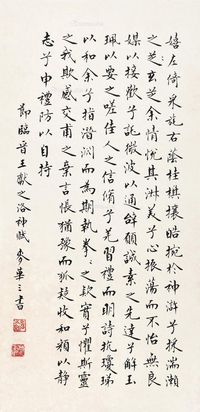 嬉左倚采旄右蔭桂旗攘皓捥於神滸兮採湍瀨
之玄芝余情悅其淑美兮心振蕩而不怡無良
媒以接歡兮託微波以通辭願誠素之先達兮解玉
珮以要之嗟佳人之信脩兮羌習禮而明詩抗瓊珶
以和余兮指潛淵而為期執拳拳之款實兮懼斯靈
之我欺感交甫之棄言悵猶豫而狐疑收和顏以靜
志兮申禮防以自持
節臨晉王獻之洛神賦 麥華三書